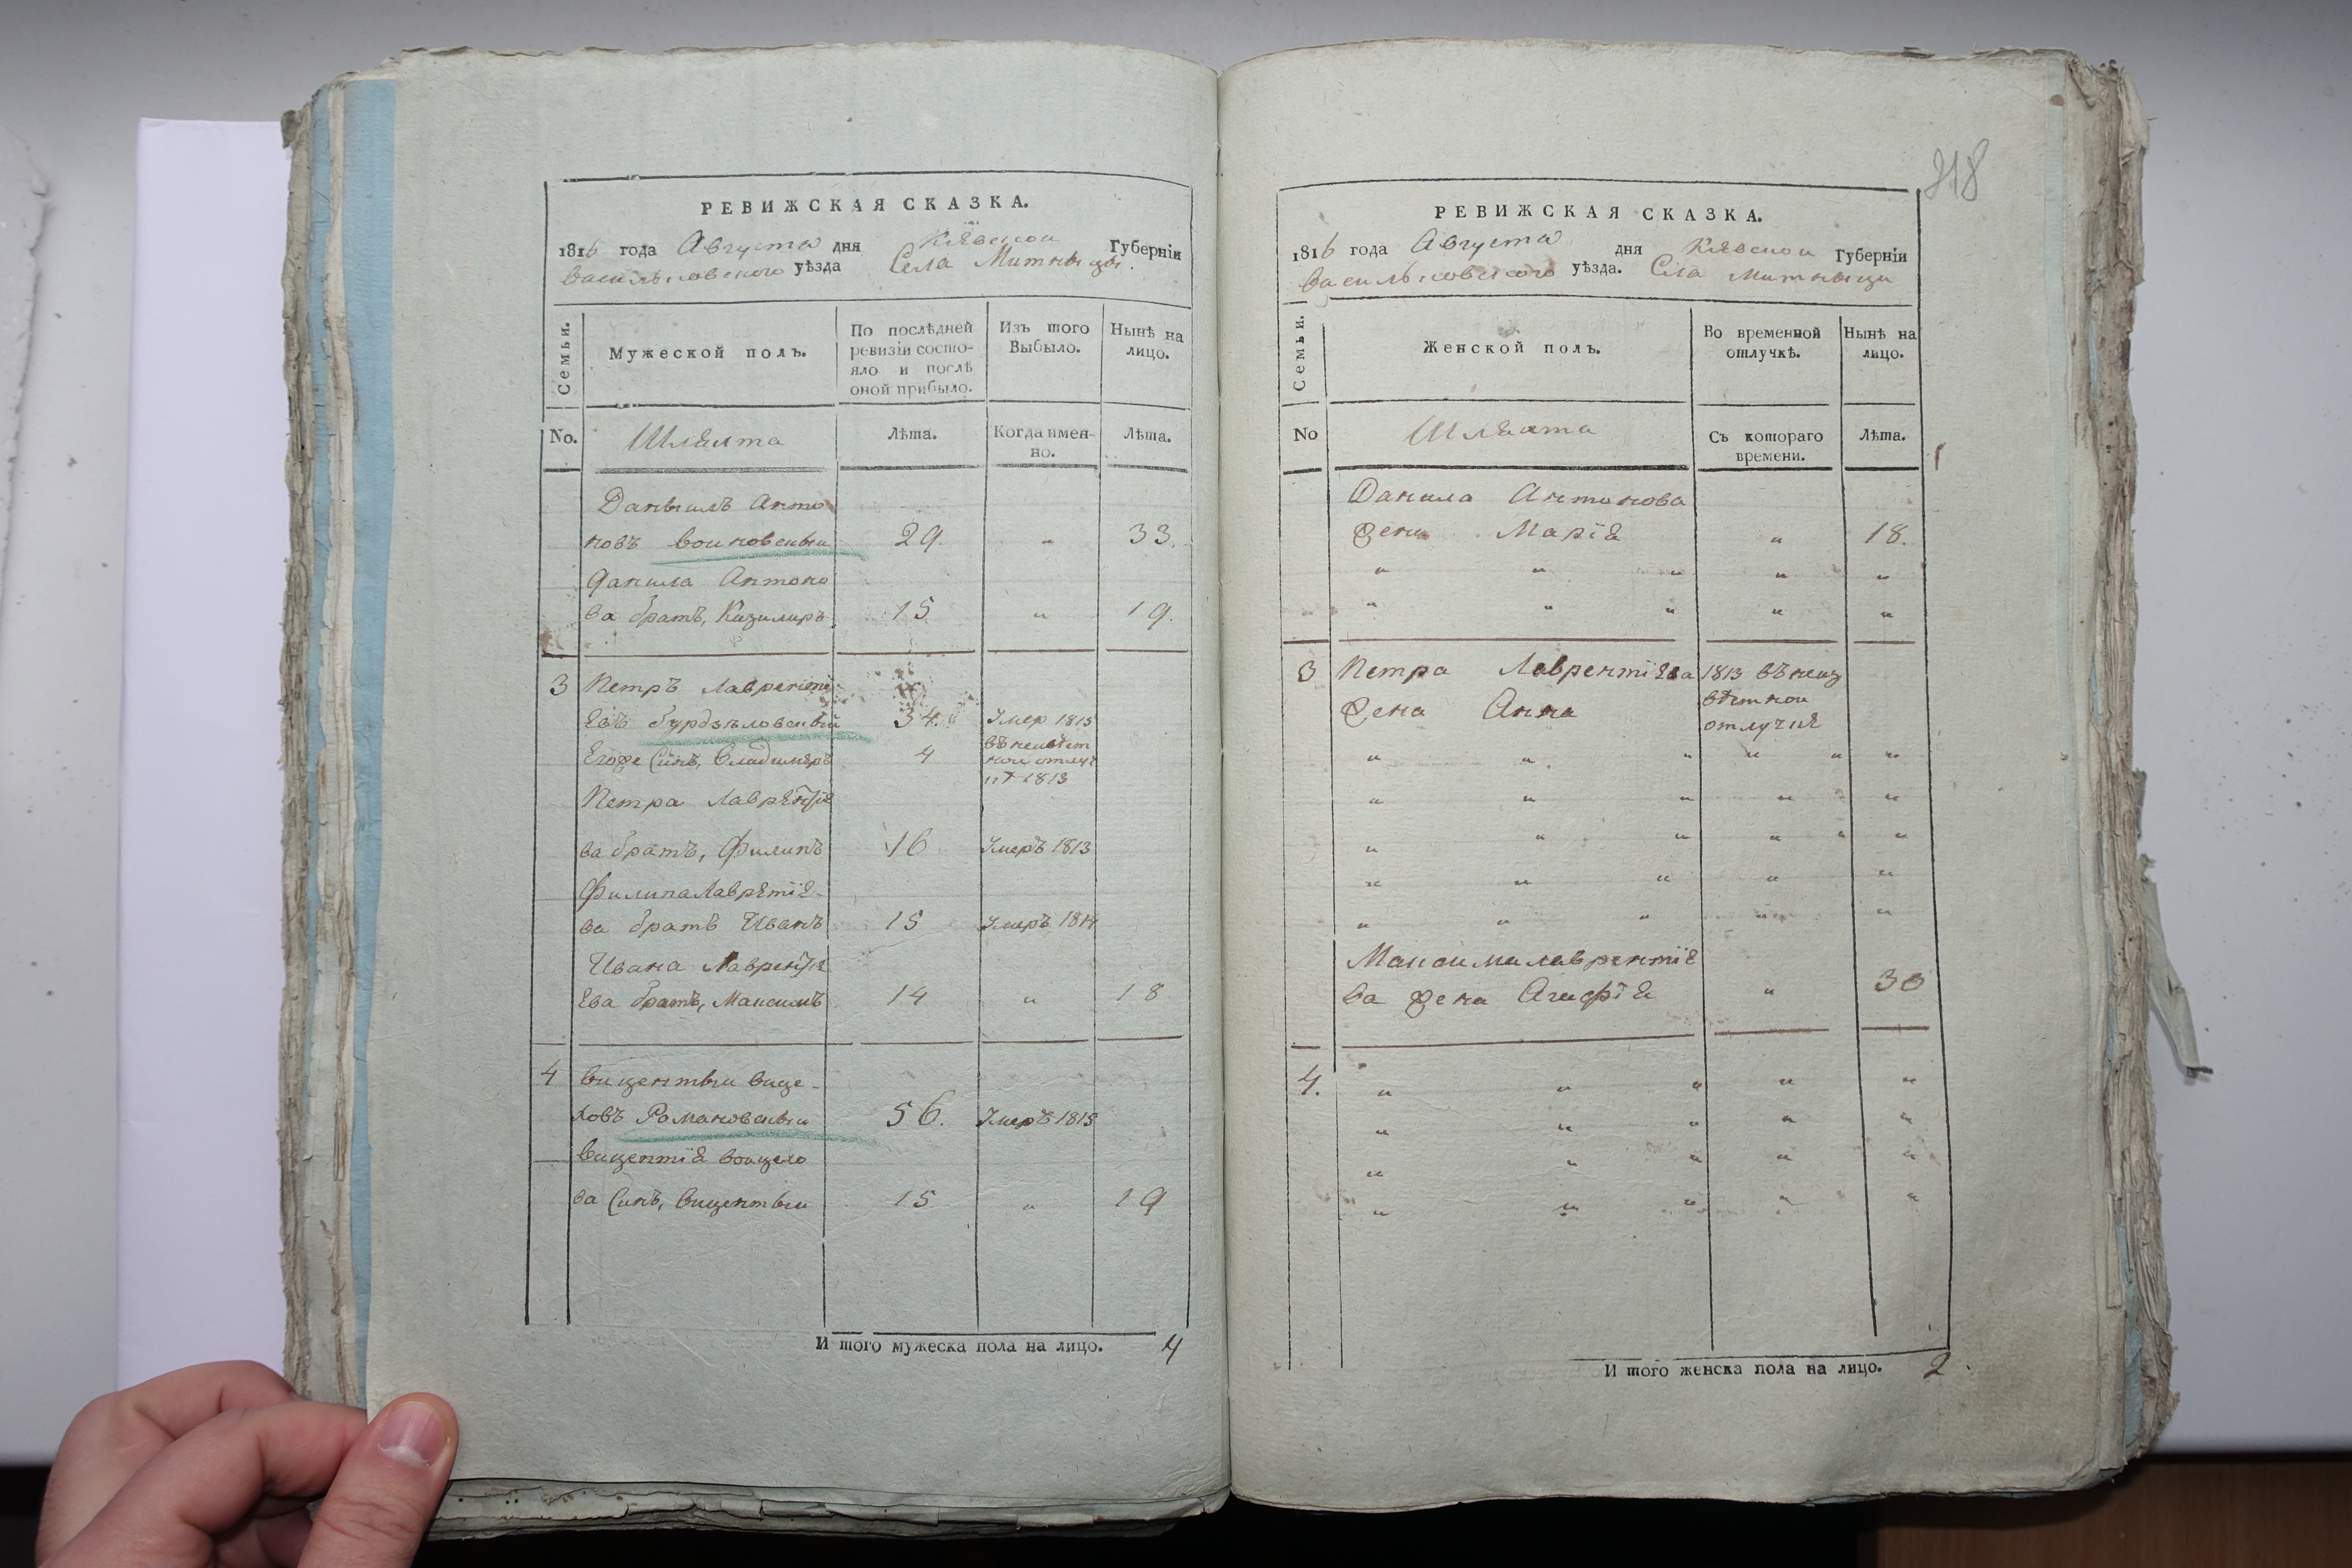 РЕВИЖСКАЯ СКАЗКА.
1816 года Августа дня Кіевской Губерніи
Васильковского уѣзда Села Митныцы.
Семьи.
Мужеской полъ.
По послѣдней ревизіи состо-
яло и послѣ
оной прибыло.
Изъ того
Выбыло.
Нынѣ на
лицо.
No.
Шляхта
Лѣта.
Когда имен-
но.
Лѣта.
Даныилъ Анто
новъ Войновскый 29. " 33.
Данила Антоно
ва братъ, Казимиръ 15 " 19.
3 Петръ Лаврентї
евъ 34. Умер 1815
Егоже Синъ, Владимиръ 4 въ неизвѣст
ной отлуч
кѣ 1813
Петра Лаврентїе
ва братъ, Филипъ 16 Умеръ 1813
Филипа Лавретїе-
ва братъ Иванъ 15 Умеръ 1814
Ивана Лаврентїе
ева братъ, Максимъ 14 " 18
4 Вицентый
Романовскый 56. Умеръ 1815
Вицентїя Войцехо
ва Синъ, Вицентый 15 " 19
И того мужеска пола на лицо. 4
318
РЕВИЖСКАЯ СКАЗКА.
1816 года Августа дня Кіевской Губерніи
Васильковского уѣзда. Села Митныци
Семьи.
Женской полъ.
Во временной
отлучкѣ.
Нынѣ на
лицо.
No
Шляхта
Съ котораго
времени.
Лѣта.
Данила Антонова
Жена Марїя " 18.
" " " " "
" " " " "
3 Петра Лаврентїева 1813 въ неиз
Жена Анна вѣстной
отлучке
" " " " " "
" " " " "
" " " " " "
" " " " "
" " " " "
Максима Лаврентїе
ва Жена Агафїя " 30
4. " " " " "
" " " " "
" " " " "
" " " " "
И того женска пола на лицо. 2